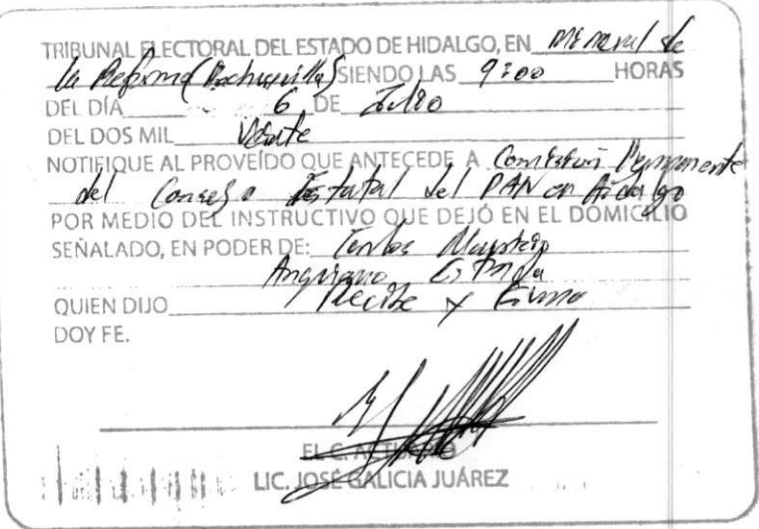 TRIBUNAL ELECTORAL DEL ESTADO DE HIDALGO, EN Mineral de
la Reforma (Pachuquilla) SIENDO LAS 9:00 HORAS
DEL DÍA 6 DE Julio
DEL DOS MIL Veinte
NOTIFIQUE AL PROVEÍDO QUE ANTECEDE A Comisión Permanente
del Consejo Estatal del PAN en Hidalgo
POR MEDIO DEL INSTRUCTIVO QUE DEJÓ EN EL DOMICILIO
SEÑALADO, EN PODER DE: Carlos Mauricio
Anguiano Estrada
QUIEN DIJO Recibe y Firma
DOY FE.
EL C. ACTUARIO
LIC. JOSÉ GALICIA JUÁREZ